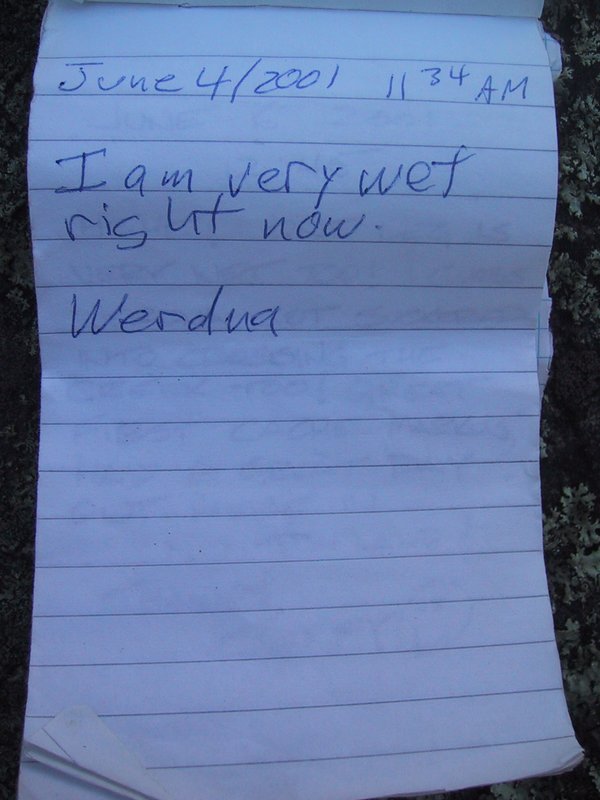 June 4/2001 11 34 AM
I am very wet
right now.
Werdna